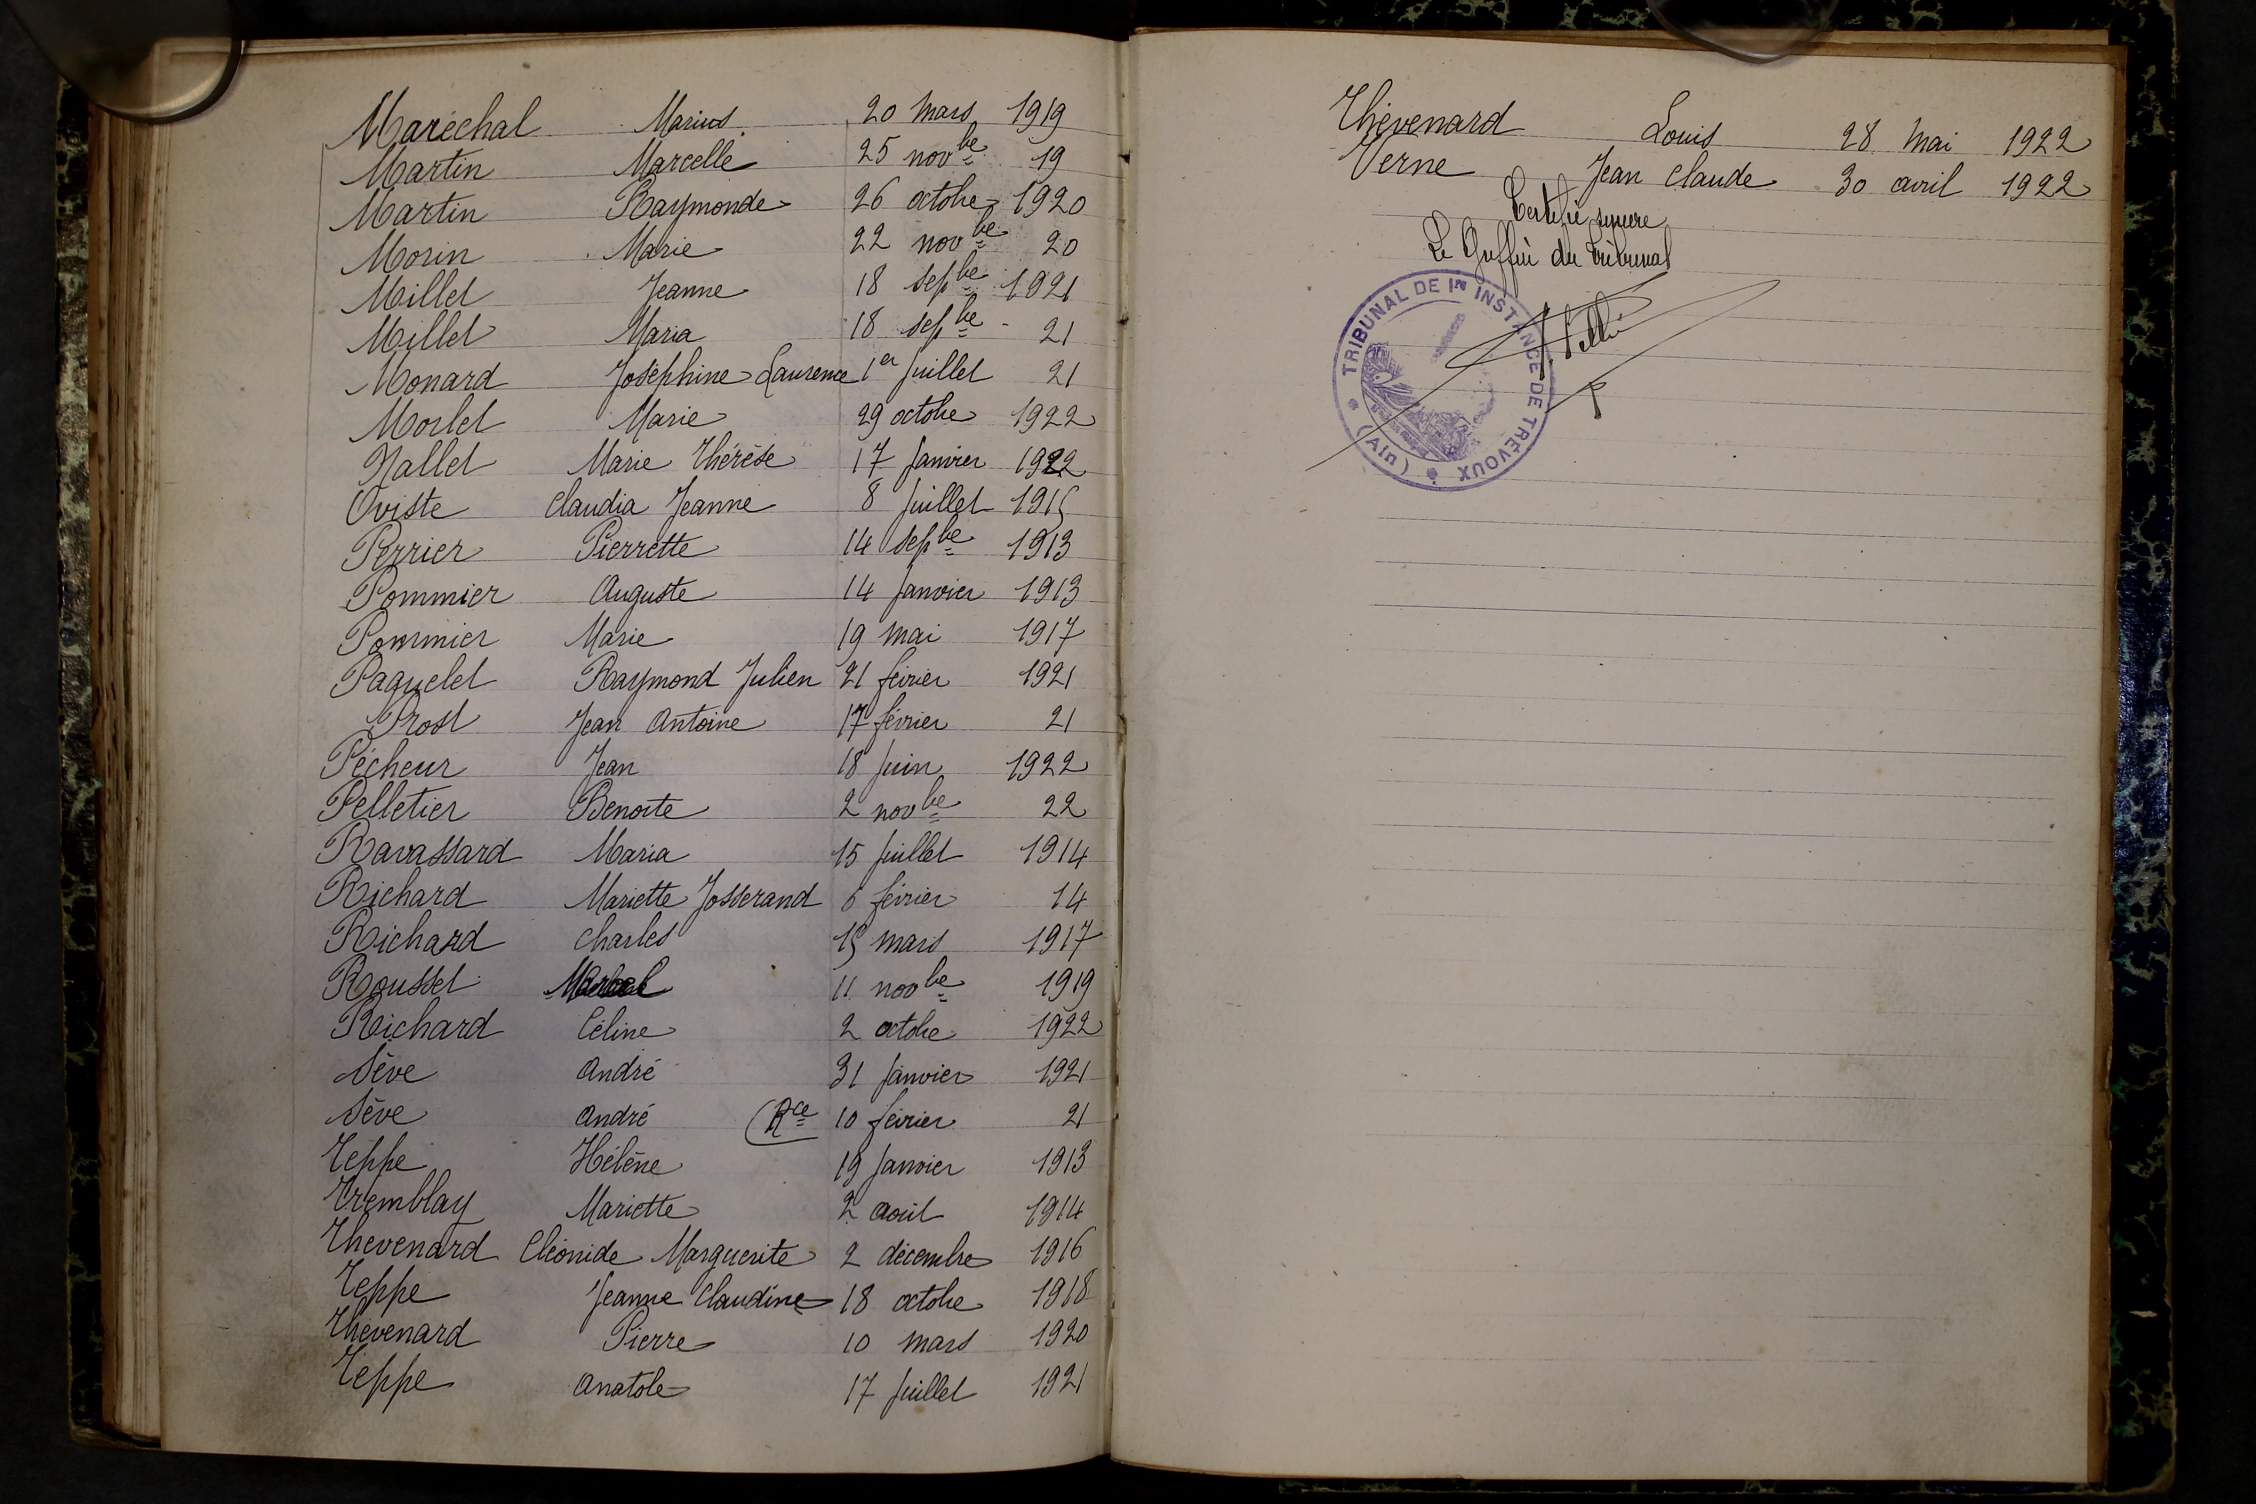 Maréchal Marius 20 mars 1919
Martin Marcelle 25 novbe 19
Martin Raymonde 26 octobre 1920
Morin Marie 22 novbe 20
Millet Jeanne 18 sepbe 1921
Millet Maria 18 sepbe - 21
Monard Joséphine Laurence 1er juillet 21
Morlet Marie 29 octobre 1922
Nallet Marie Thérèse 17 janvier 1922
Oviste Claudia Jeanne 8 juillet 1915
Perrier Pierrette 14 sepbe 1913
Pommier Auguste 14 janvier 1913
Pommier Marie 19 mai 1917
Paquelet Raymond Julien 21 février 1921
Prost Jean Antoine 17 février 21
Pécheur Jean 18 juin 1922
Pelletier Benoite 2 novbe 22
Ravassard Maria 15 juillet 1914
Richard Mariette Josserand 6 février 14
Richard Charles 15 mars 1917
Rousset 11 novbe 1919
Richard Céline 2 octobre 1922
Sève André 31 janvier 1921
Sève André (Rce 10 février 21
Teppe Hélène 19 janvier 1913
Tremblay Mariette 2 août 1914
Thevenard Cléonide Marguerite 2 décembre 1916
Teppe Jeanne Claudine 18 octobre 1918
Thévenard Pierre 10 mars 1920
Teppe Anatole 17 juillet 1921
Thévenard Louis 28 mai 1922
Verne Jean Claude 30 avril 1922
Certifié sincère
Le Greffier du Tribunal
TRIBUNAL DE 1re INSTANCE DE TRÉVOUX
(Ain)